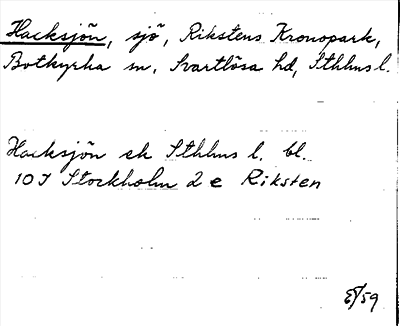 Hacksjön, sjö, Rikstens Kronopark,
Botkyrka sn, Svartlösa hd, Sthlms l.
Hacksjön ek Sthlms l. bl.
10 I Stockholm 2 e Riksten